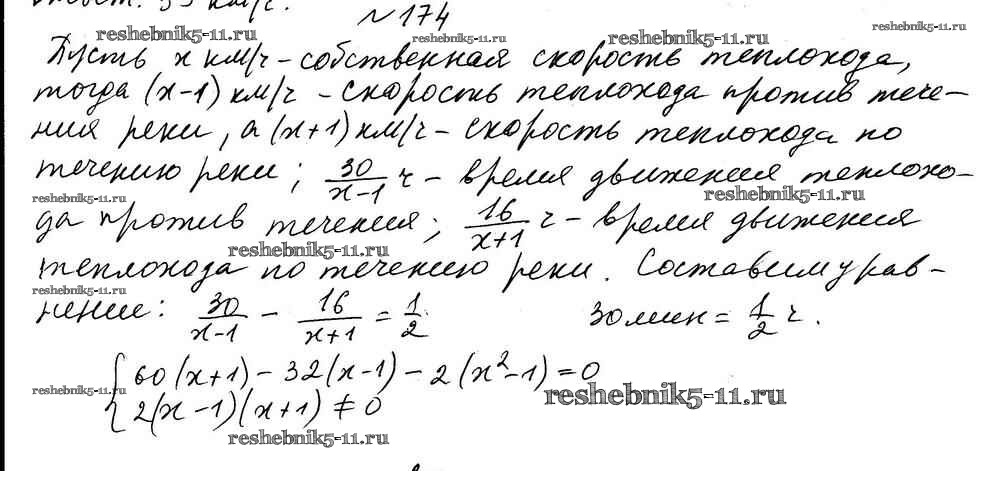 №174
Пусть x км/ч - собственная скорость теплохода,
тогда (x-1) км/ч - скорость теплохода против тече-
ния реки, а (x+1) км/ч - скорость теплохода по
течению реки; 30/(x-1) ч - время движения теплохо-
да против течения; 16/(x+1) ч - время движения
теплохода по течению реки. Составим урав-
нение: 30/(x-1) - 16/(x+1) = 1/2 30 мин = 1/2 ч.
{ 60(x+1) - 32(x-1) - 2(x²-1) = 0
2(x-1)(x+1) ≠ 0
reshebnik5-11.ru
reshebnik5-11.ru
reshebnik5-11.ru
reshebnik5-11.ru
reshebnik5-11.ru
reshebnik5-11.ru
reshebnik5-11.ru
reshebnik5-11.ru
reshebnik5-11.ru
reshebnik5-11.ru
reshebnik5-11.ru